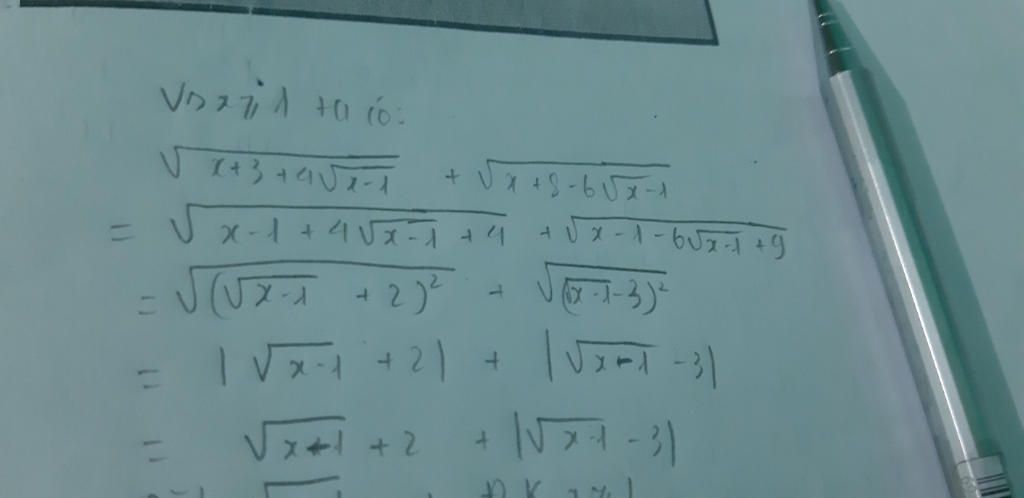 Với x ≥ 1 ta có:
√(x+3+4√(x-1)) + √(x+8-6√(x-1))
= √(x-1+4√(x-1)+4) + √(x-1-6√(x-1)+9)
= √((√(x-1)+2)²) + √((√(x-1)-3)²)
= |√(x-1)+2| + |√(x-1)-3|
= √(x-1)+2 + |√(x-1)-3|